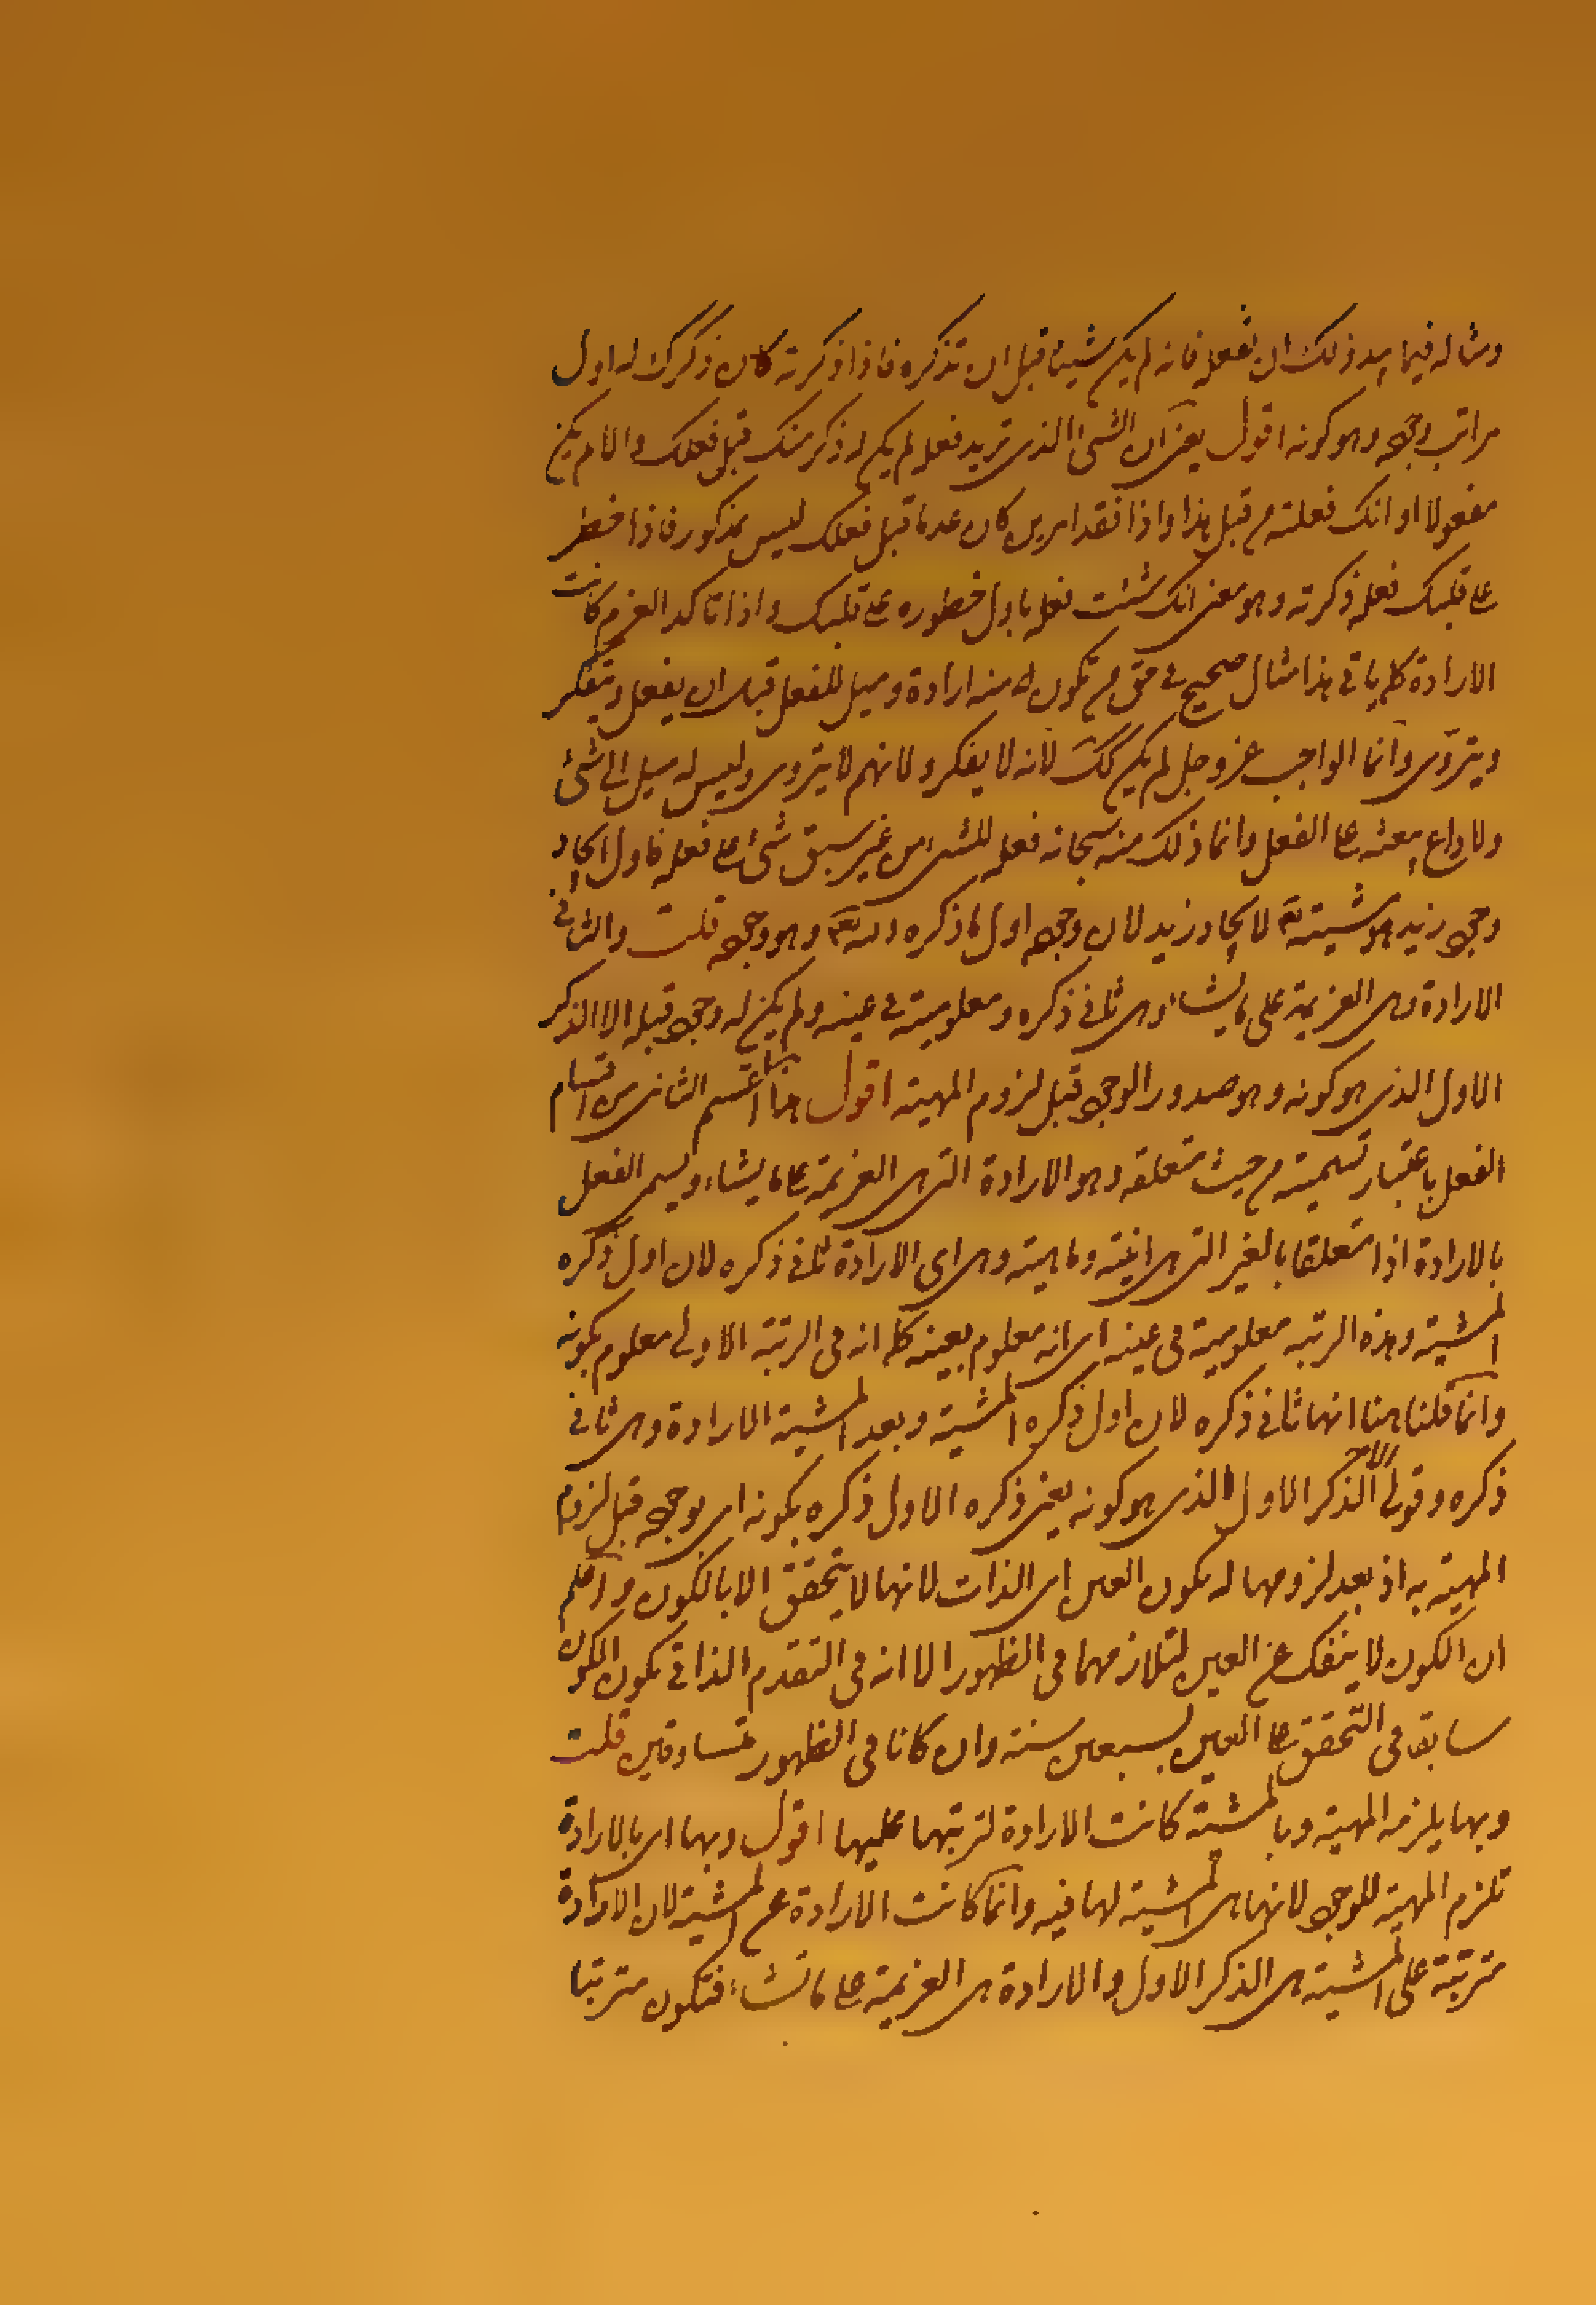 ومثاله فيما يبدو لك ان تفعله فانه لم يكن شيئا قبل ان تذكره فاذا ذكرته كان ذكرك له اول
مراتب وجوده وهو كونه اقول يعنى ان الشئ الذى تريد فعله لم يكن له ذكر منك قبل فعلك والا لم يكن
مفعولا او انك فعلته من قبل هذا واذا فقد امرين كان عدما قبل فعلك ليس بمذكور فاذا خطر
على قلبك فعله ذكرته وهو معنى انك شئت فعله باول خطوره على قلبك واذا تاكد العزم كانت
الارادة كما ياتى هذا مثال صحيح فى حق من تكون له منه ارادة وميل للفعل قبل ان يفعل ويتفكر
ويتروّى وانما الواجب عز وجل لم يكن كك لانه لا يفكر ولا يهم لا يتروى وليس له ميل الى شئ
ولا داع يبعثه على الفعل وانما ذلك منه سبحانه فعله للشئ من غير سبق شئ على فعله فاول ايجاد
وجود زيد هو مشيته تع لايجاد زيد لان وجوده اول ما ذكره الله تع وهو وجوده قلت والثانى
الارادة وهى العزيمة على ما يشاء وهى ثانى ذكره ومعلوميته فى عينه ولم يكن له وجود قبله الا الذكر
الاول الذى هو كونه وهو صدور الوجود قبل لزوم المهية اقول هنا القسم الثانى من اقسام
الفعل باعتبار تسميته من حيث متعلقه وهو الارادة التى هى العزيمة على ما يشاء ويسمى الفعل
بالارادة اذا متعلقا بالغير التى هى انيته وماهيته وهى اى الارادة ثانى ذكره لان اول ذكره
المشية وهذه الرتبه معلوميته فى عينه اى انه معلوم بعينه كما انه فى الرتبة الاولى معلوم بكونه
وانما قلنا هنا انها ثانى ذكره لان اول ذكره المشية وبعد المشية الارادة وهى ثانى
ذكره وقولى الا الذكر الاول الذى هو كونه يعنى ذكره الاول ذكره بكونه اى بوجوده قبل لزوم
المهية به اذ بعد لزومها له يكون العين اى الذات لانها لا يتحقق الا بالكون واعلم
ان الكون لا ينفك عن العين لتلازمهما فى الظهور الا انه فى التقدم الذاتى يكون الكون
سابقا فى التحقق على العين بسبعين سنة وان كانا فى الظهور متساوقين قلت
وبها يلزمه المهية وبالمشية كانت الارادة لترتبها عليها اقول وبها اى بالارادة
تلزم المهية للوجود لانها هى المشية لها فيه وانما كانت الارادة عن المشية لان الارادة
مترتبة على المشية هى الذكر الاول والارادة هى العزيمة على ما نشاء فتكون مترتبا